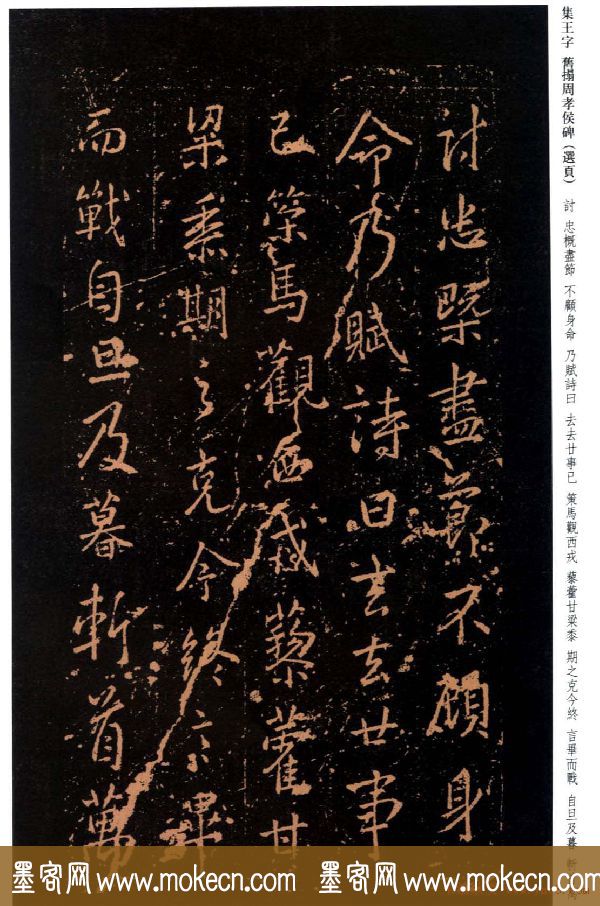 集王字 舊搨周孝侯碑（選頁） 討 忠概盡節 不顧身命 乃賦詩曰 去去廿事已 策馬觀西戎 藜藿甘梁黍 期之克令終 言畢而戰 自旦及暮 斬首萬
討忠槩盡節不顧身
命乃賦詩曰去去廿事
已策馬觀西戎藜藿甘
梁黍期之克令終言畢
而戰自旦及暮斬首萬
墨客网 www.mokecn.com 墨客网 www.mokecn.com